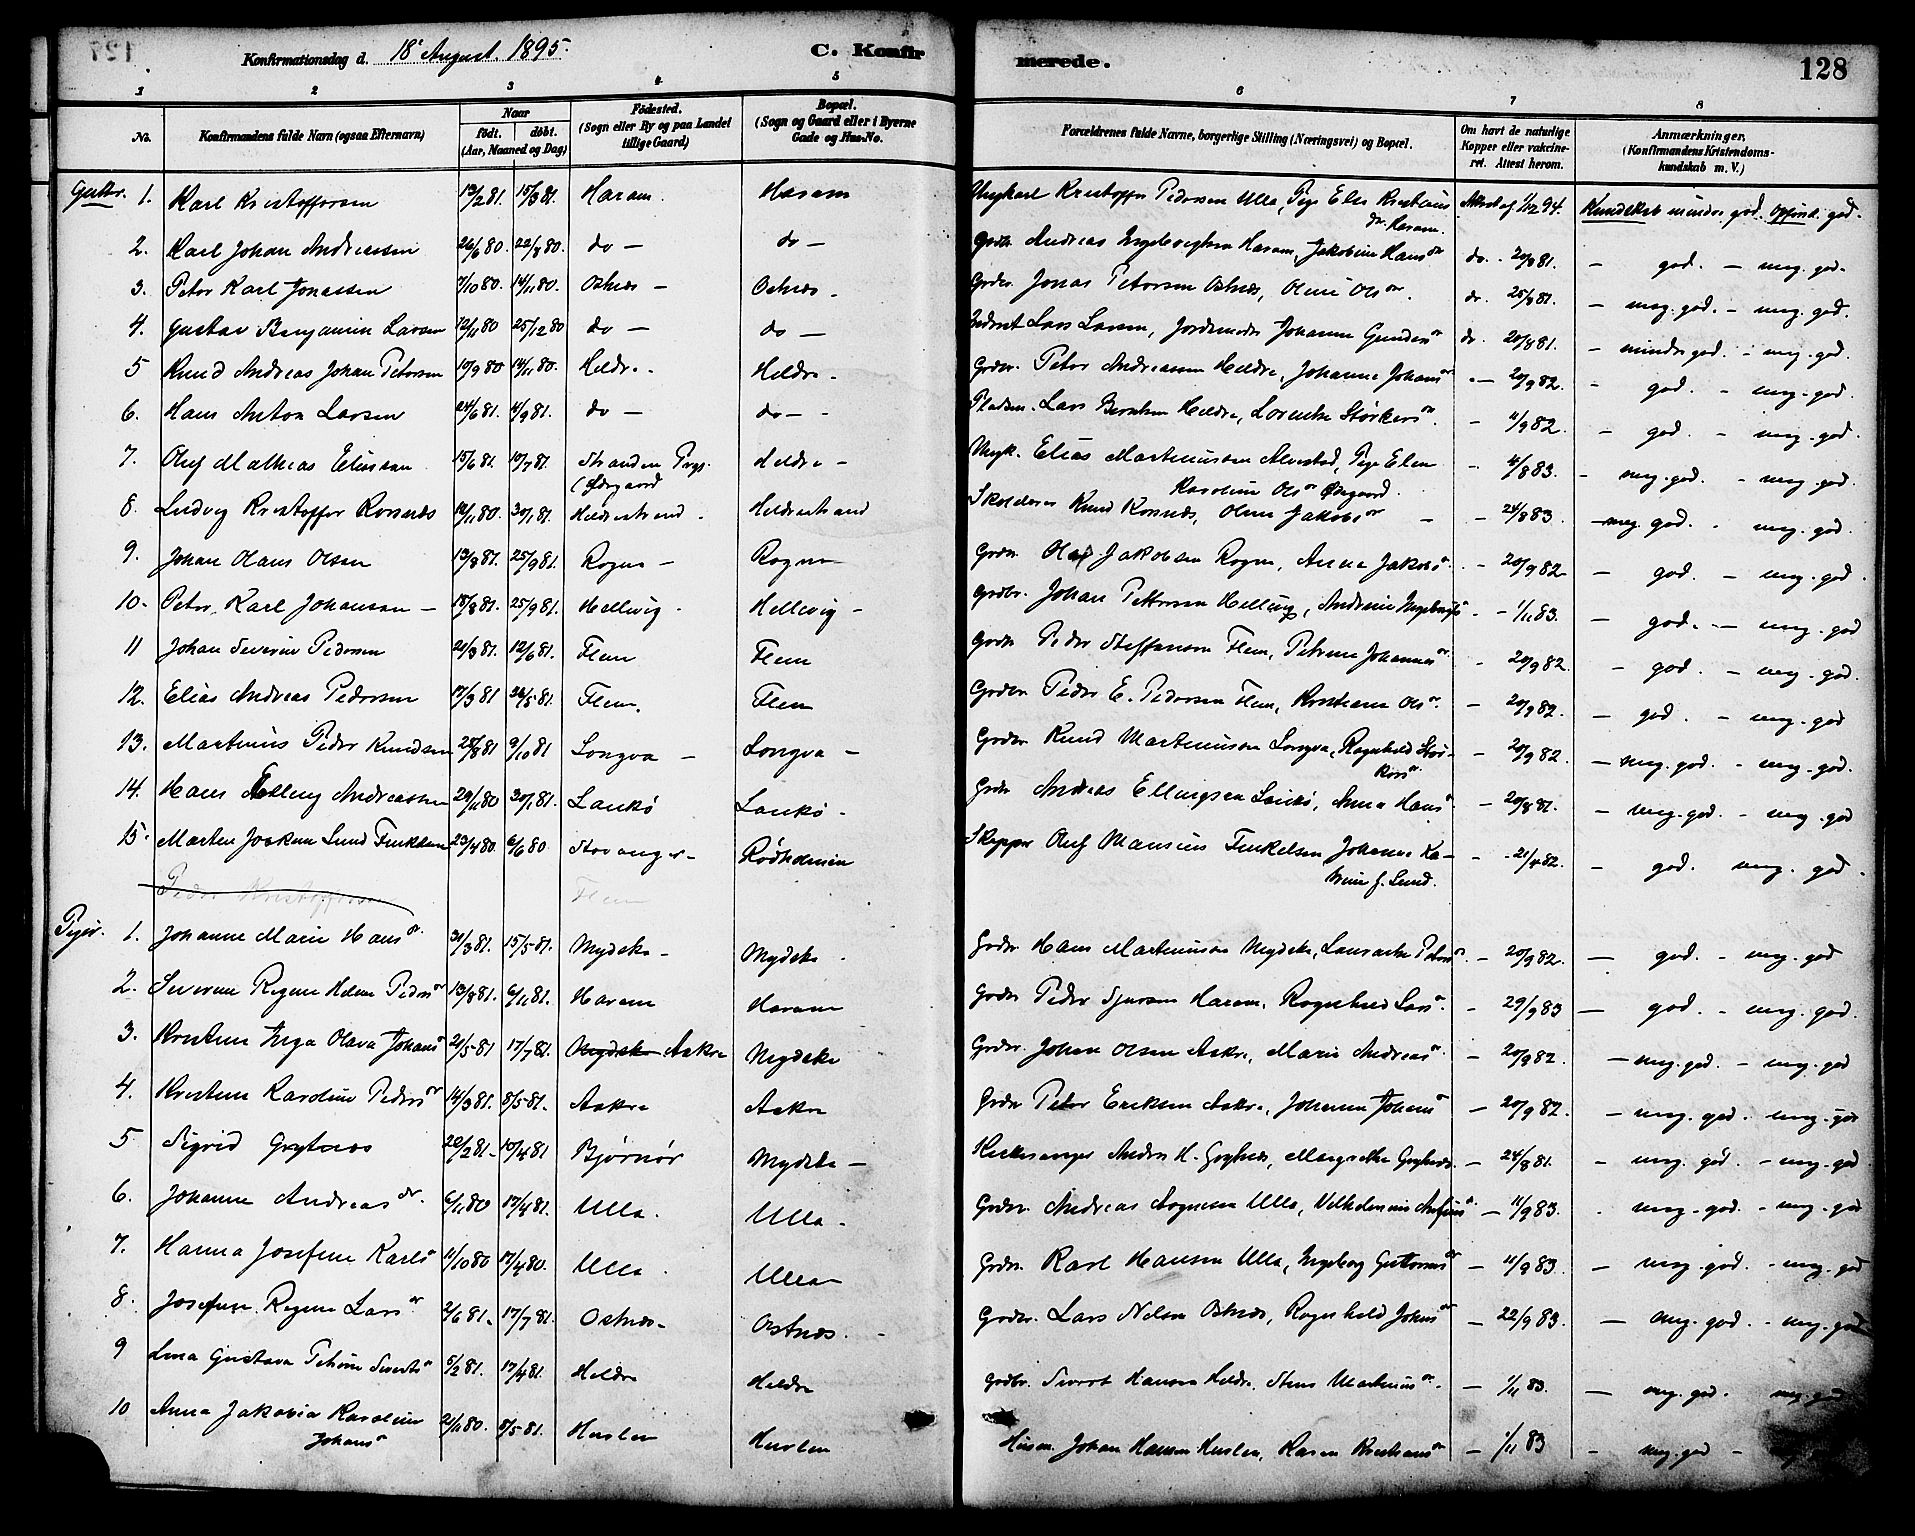 Konfirmationsdag d. 18' August 1895. C. Konfirmerede. 128
1 2 3 4 5 6 7 8
No. Konfirmandens fulde Navn (ogsaa Efternavn) Naar født. døbt. (Aar, Maaned og Dag) Fødested. (Sogn eller By og paa Landet tillige Gaard) Bopæl. (Sogn og Gaard eller i Byerne Gade og Hus-No. Forældrenes fulde Navne, borgerlige Stilling (Næringsvei) og Bopæl. Om havt de naturlige Kopper eller vakcineret. Attest herom. Anmærkninger. (Konfirmandens Kristendomskundskab m. V.)
Gutter. 1. Karl Kristoffersen 13/2 81. 15/3 81. Haram. Haram Ungkarl Kristoffer Pedersen Ulla, Pige Else Kristians dr. Haram. Attest af 1/12 94. Kundskab mindre god. Opførsel god.
2. Karl Johan Andreassen 26/6 80. 22/8 80. do — do — Grdbr. Andreas Ingebrigtsen Haram, Jakobine Hans dr do. 20/8 81. — god. — meg. god.
3. Peter Karl Jonassen 7/10 80. 14/11 80. Ostnæs — Ostnæs — Grdbr. Jonas Petersen Ostnæs, Oline Ols dr. do. 25/8 81. — meg. god. — meg. god.
4. Gustav Benjamin Larsen 12/11 80 25/12 80 do — do — Inderst Lars Larsen, Jordemoder Johanne Gunders dr do. 20/8 81. — mindre god. — meg. god.
5 Knud Andreas Johan Petersen 10/9 80 14/11 80. Heldre. Heldre. Grdbr. Peter Andreassen Heldre, Johanne Johans dr — 20/9 82. — god. — meg. god.
6. Hans Anton Larsen 24/6 81. 4/9 81. do — do — Pladsm. Lars Berntsen Heldre, Lorentse Størkers dr. — 11/9 82. — god. — meg. god.
7. Oluf Mathias Eliassen 15/6 81. 10/7 81. Stranden Prgj. (Ødegaard Heldre — Ungk. Elias Martinussen Alvestad, Pige Elen Karoline Ols dr Ødegaard. — 4/8 83. — meg. god. — meg. god.
8. Ludvig Kristoffer Rosnæs 12/11 80. 30/1 81. Heldrestrand. Heldrestrand Skolelærer Knud Rosnæs, Oline Jakobs dr — 24/8 83. — meg. god. — meg. god.
9. Johan Olaus Olsen 13/8 81. 25/9 81. Rogne — Rogne — Grdbr. Ole Jakobsen Rogne, Anne Jakobs dr. — 20/9 82. — god. — meg. god.
10. Peter Karl Johansen — 18/8 81. 25/9 81. Hellevig. Hellevig — Grdbr. Johan Pettersen Hellevig, Andrine Ingebrigts dr — 1/11 83. — god. — meg. god
11 Johan Severin Pedersen 21/3 81. 12/6 81. Flem Flem Grdbr. Peder Steffensen Flem, Petrine Johannes dr. — 20/9 82. — god. — meg. god.
12. Elias Andreas Pedersen 17/3 81 26/5 81. Flem. Flem Grdbr. Peder E. Pedersen Flem, Kristiane Ols dr. — 20/9 82. — god. — meg. god
13. Martinus Peder Knudsen 28/8 81 9/10 81 Longva — Longva — Grdbr. Knud Martinussen Longva, Ragnhild Størkers dr. — 20/9 82. — meg. god. — meg. god.
14. Hans Elling Andreassen 29/11 80 30/1 81. Laukø Laukø. Grdbr. Andreas Ellingsen Laukø, Anna Hans dr. — 20/8 81. — meg. god. — meg. god
15. Morten Joakim Lund Finkelsen 23/4 80 6/6 80. Stavanger — Rødholmen Skipper Oluf Mansius Finkelsen, Johanne Katrine J. Lund. — 21/4 82. — god. meg. god.
Peder Kristoffersen Flem
Piger. 1. Johanne Marie Hans dr. 31/3 81. 15/5 81. Mydske — Mydske. Grdbr. Hans Martinussen Mydske, Laurentse Peters dr. — 20/9 82. — god. — meg. god
2. Severine Regine Helene Peders dr 13/8 81. 6/11 81. Haram Haram Grdbr. Peder Sjursen Haram, Ragnhild Lars dr. — 29/9 83 — god. — meg. god.
3. Kristine Inga Olava Johans dr 21/5 81 17/7 81. Mydske Aakre Mydske Grdbr. Johan Olsen Aakre, Marie Andreas dr. — 20/9 82. — meg. god. — meg. god
4. Kristine Karoline Peders dr 14/3 81. 8/5 81. Aakre Aakre Grdbr. Peter Eriksen Aakre, Johanne Johans dr — 20/9 82. — meg. god. meg. god
5 Sigrid Grytnæs 20/2 81. 10/4 81 Bjørnør Mydske — Kirkesanger Anders H. Grytnæs, Margrethe Grytnæs. — 24/8 81. — meg. god. — meg. god
6. Johanne Andreas dr. 6/11 80 17/4 81. Ulla. Ulla. Grdbr. Andreas Aagesen Ulla, Vilhelmine Anfins dr — 11/9 83. meg. god. — meg. god
7. Hanna Josefine Karls dr 11/10 80 17/4 80. Ulla. Ulla Grdbr. Karl Hansen Ulla, Ingeborg Guttorms dr — 11/9 83. — meg. god. — meg. god
8. Josefine Regine Lars dr 2/6 81. 17/7 81. Ostnæs. Ostnæs. Grdbr. Lars Nilsen Ostnæs, Ragnhild Johns dr — 22/9 83. — meg. god. — meg. god
9 Lina Gustava Petrine Siverts dr 5/2 81. 17/4 81. Heldre Heldre Grdbr. Sivert Hansen Heldre, Stine Martinus dr. — 1/11 83. — meg. god. meg. god
10 Anna Jakobia Karoline Johans dr 21/11 80. 8/5 81. Huslen Huslen Husm. Johan Hansen Huslen, Karen Kristians dr — 1/11 83 — meg. god —